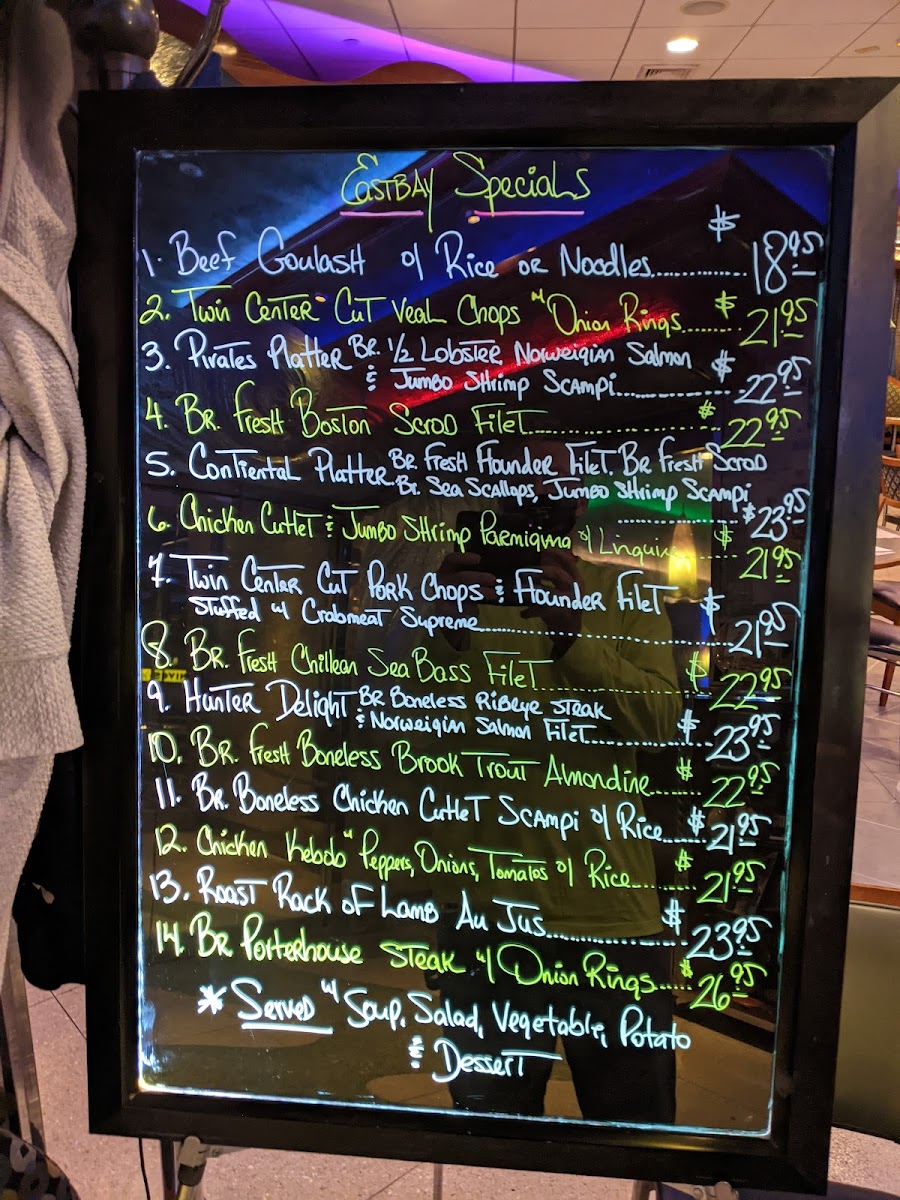 EastBay Specials
1. Beef Goulash o/ Rice or Noodles............ $18.95
2. Twin Center Cut Veal Chops w/ Onion Rings........ $21.95
3. Pirates Platter Br. 1/2 Lobster Norweigian Salmon
& Jumbo Shrimp Scampi............ $22.95
4. Br. Fresh Boston Scrod Filet............ $22.95
5. Contiental Platter Br. Fresh Flounder Filet. Br Fresh Scrod
Br. Sea Scallops, Jumbo Shrimp Scampi
............ $23.95
6. Chicken Cutlet & Jumbo Shrimp Parmigiana o/ Linquini...... $21.95
7. Twin Center Cut Pork Chops & Flounder Filet
Stuffed w/ Crabmeat Supreme............ $21.95
8. Br. Fresh Chillean Sea Bass Filet............ $22.95
9. Hunter Delight Br Boneless Ribeye Steak
& Norweigian Salmon Filet............ $23.95
10. Br. Fresh Boneless Brook Trout Almondine....... $22.95
11. Br. Boneless Chicken Cutlet Scampi o/ Rice..... $21.95
12. Chicken Kebob w/ Peppers, Onions, Tomatos o/ Rice....... $21.95
13. Roast Rack of Lamb Au Jus............ $23.95
14. Br Porterhouse Steak w/ Onion Rings...... $26.95
* Served w/ Soup, Salad, Vegetable, Potato
& Dessert